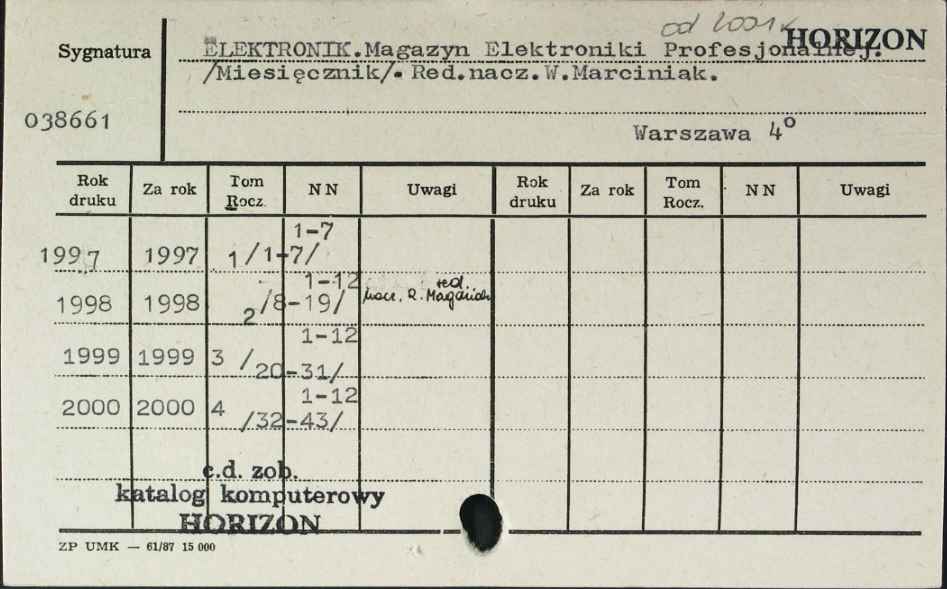 od 2001 HORIZON
Sygnatura ELEKTRONIK.Magazyn Elektroniki Profesjonalnej.
/Miesięcznik/. Red.nacz.W.Marciniak.
038661
Warszawa 4°
Rok druku Za rok Tom Rocz. N N Uwagi Rok druku Za rok Tom Rocz. N N Uwagi
1-7
1997 1997 1/1-7/
1-12 red.
1998 1998 2/8-19/ nacz. R.
1-12
1999 1999 3 /20-31/
1-12
2000 2000 4 /32-43/
c.d. zob.
katalog komputerowy
HORIZON
ZP UMK — 61/87 15 000